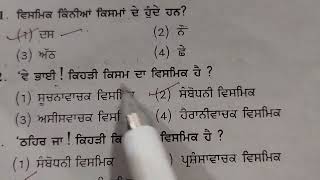 1. ਵਿਸਮਿਕ ਕਿੰਨੀਆਂ ਕਿਸਮਾਂ ਦੇ ਹੁੰਦੇ ਹਨ?
(1) ਦਸ (2) ਨੌਂ
(3) ਅੱਠ (4) ਛੇ
2. 'ਵੇ ਭਾਈ! ਕਿਹੜੀ ਕਿਸਮ ਦਾ ਵਿਸਮਿਕ ਹੈ ?
(1) ਸੂਚਨਾਵਾਚਕ ਵਿਸਮਿਕ (2) ਸੰਬੋਧਨੀ ਵਿਸਮਿਕ
(3) ਅਸੀਸਵਾਚਕ ਵਿਸਮਿ (4) ਹੈਰਾਨੀਵਾਚਕ ਵਿਸਮਿਕ
'ਠਹਿਰ ਜਾ! ਕਿਹੜੀ ਕਿਸਮ ਵਿਸਮਿਕ ਹੈ ?
(1) ਸੰਬੋਧਨੀ ਵਿਸਮਿਕ ਪ੍ਰਸ਼ੰਸਾਵਾਚਕ ਵਿਸਮਿਕ